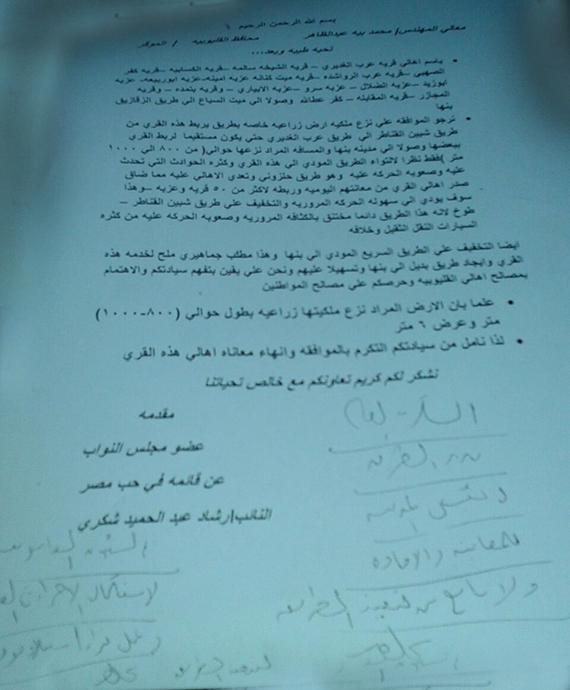 بسم الله الرحمن الرحيم
معالي المهندس/ محمد بيه عبدالظاهر محافظ القليوبيه / الموقر
تحيه طيبه وبعد...
• باسم اهالي قريه عرب الغديري – قريه الشيخه سالمه – قريه الكسابيه – قريه كفر
الصهبي – قريه عرب الرواشده – قريه ميت كنانه عزبه امينه- عزبه ابوربيعه- عزبه
ابوزيد – عزبه الضلال – عزبه سرو – عزبه الابياري – وقريه بتمده – وقريه
المجازر – قريه المقابله – كفر عطاالله وصولا الي ميت السباع الي طريق الزقازيق
بنها
• نرجو الموافقه علي نزع ملكيه ارض زراعيه خاصه بطريق يربط هذه القري من
طريق شبين القناطر الي طريق عرب الغديري حتي يكون مستقيما لربط القري
ببعضها وصولا الي مدينه بنها والمسافه المراد نزعها حوالي( من ٨٠٠ الي ١٠٠٠
متر )فقط نظرا لالتواء الطريق المودي الي هذه القري وكثره الحوادث التي تحدث
عليه وصعوبه الحركه عليه وهو طريق حلزوني وتعدي الاهالي عليه مما ضاق
صدر اهالي القري من معانتهم اليوميه وربطه لاكثر من ٥٠ قريه وعزبه – وهذا
سوف يودي الي سهوله الحركه المروريه والتخفيف علي طريق شبين القناطر –
طوخ لانه هذا الطريق دائما مختنق بالكثافه المروريه وصعوبه الحركه عليه من كثره
السيارات النقل الثقيل وخلافه
ايضا التخفيف علي الطريق السريع المودي الي بنها وهذا مطلب جماهيري ملح لخدمه هذه
القري وايجاد طريق بديل الي بنها وتسهيلا عليهم ونحن علي يقين بتفهم سيادتكم والاهتمام
بمصالح اهالي القليوبيه وحرصكم علي مصالح المواطنين
• علما بان الارض المراد نزع ملكيتها زراعيه بطول حوالي (٨٠٠-١٠٠٠)
متر وعرض ٦ متر
• لذا نامل من سيادتكم التكرم بالموافقه وانهاء معاناه اهالي هذه القري
نشكر لكم كريم تعاونكم مع خالص تحياتنا
مقدمه
عضو مجلس النواب
عن قائمه في حب مصر
النائب/رشاد عبد الحميد شكري
للمعاينه والافاده